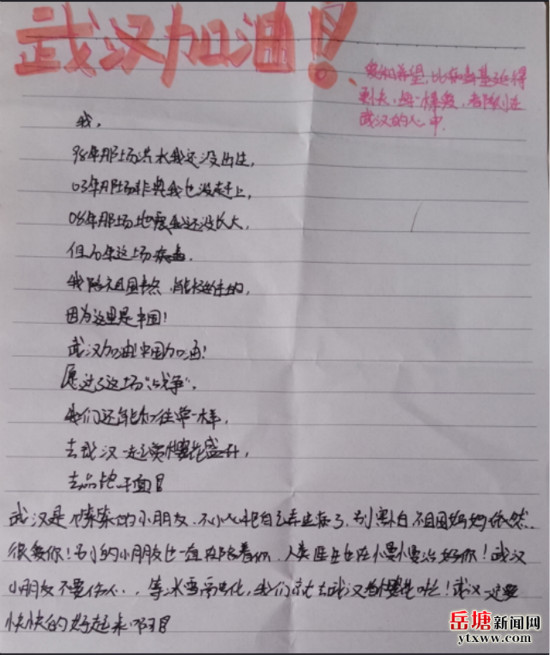 武汉加油!
爱和希望,比病毒蔓延得
更快,每一棵
武汉的心中.
我,
98年那场洪水我还没出生,
03年那场非典我也没赶上,
08年那场地震我还没长大,
但20年这场病毒,
我陪祖国
因为这里是中国!
武汉加油!中国加油!
愿过了这场"战争",
我们还能如往年一样,
去武汉一起赏樱花盛开,
去品热干面
武汉是个 的小朋友,不小心把自己弄生病了,别害怕祖国妈妈依然
很爱你!别的小朋友也一直在陪着你,人类医生也在慢慢治好你!武汉
小朋友不要伤心..等冰雪消化,我们就去武汉看樱花啦!武汉 要
快快的好起来啊
岳塘新闻网
ytxww.com